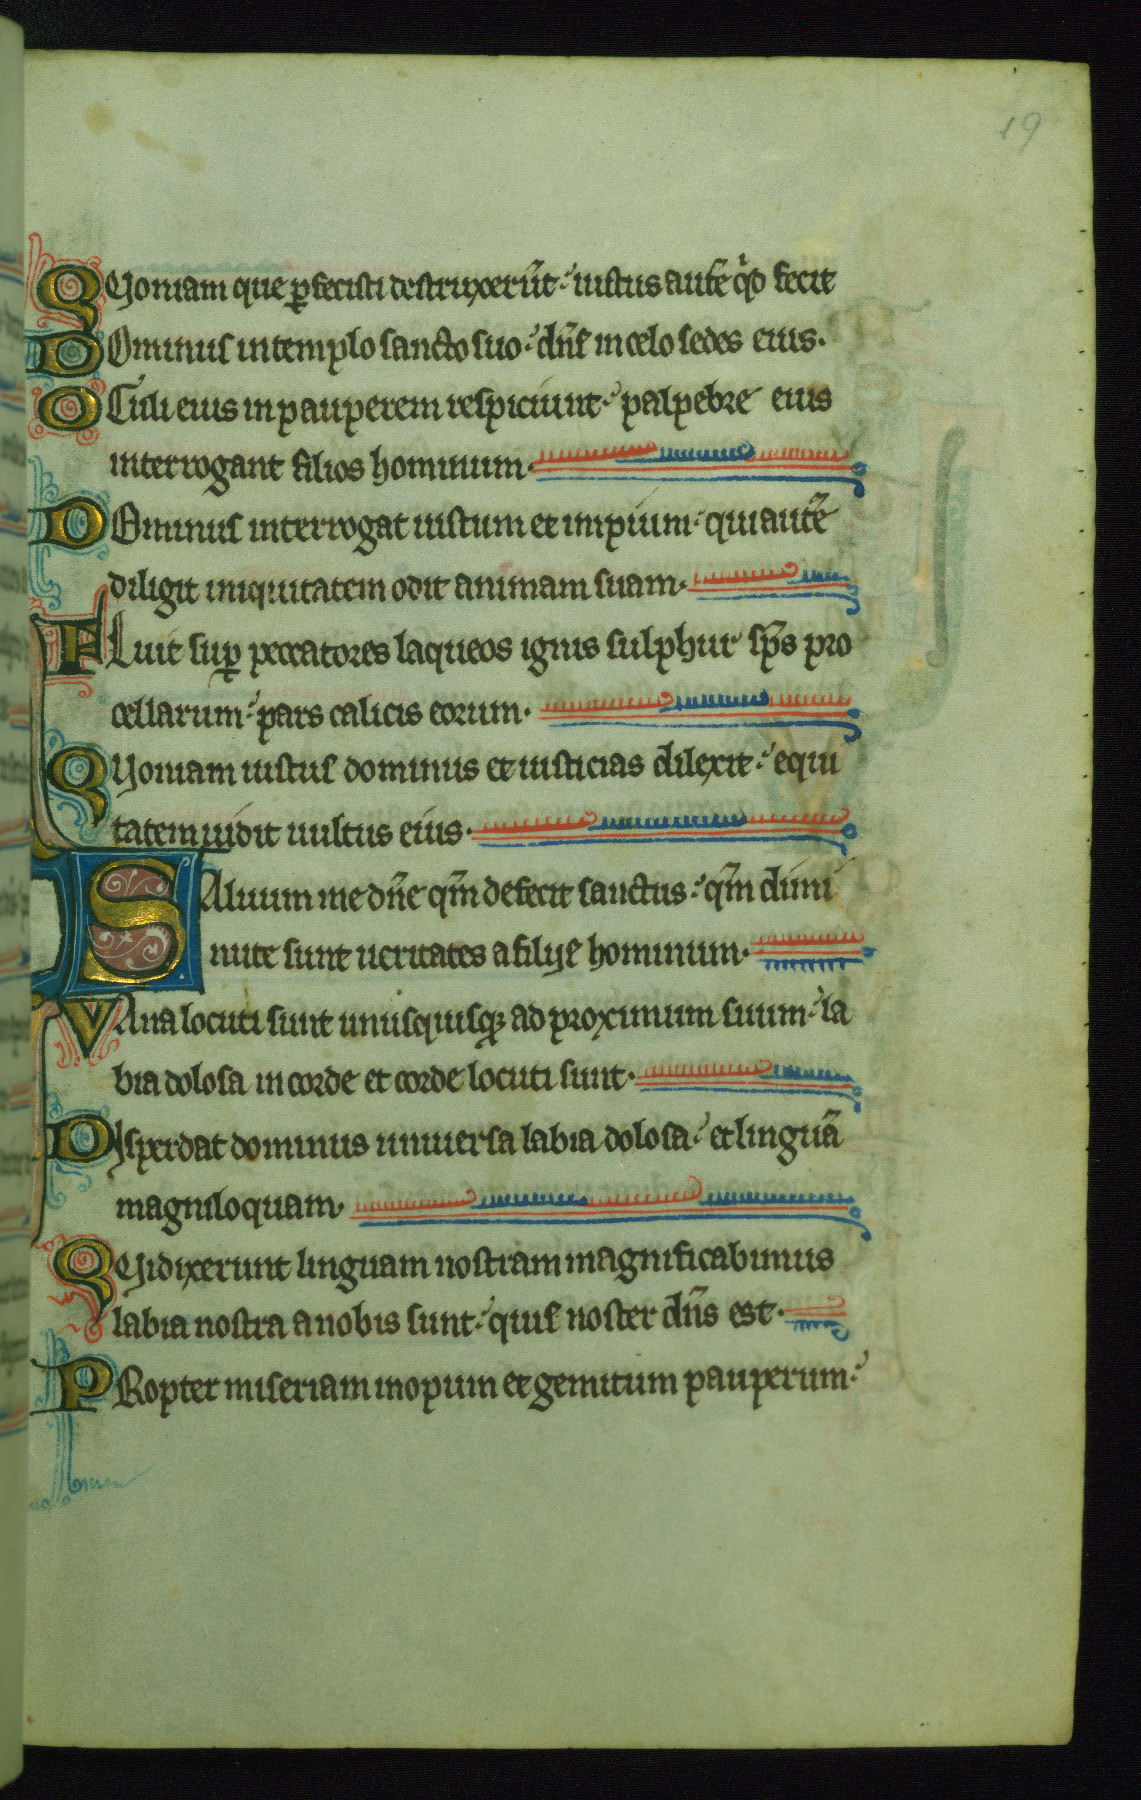 19
QUoniam que ꝑfecisti destruxerūt: iustus autē qͥd fecit
DOminus in templo sancto suo: dn̄s in celo sedes eius.
OCuli eius in pauperem respiciunt: palpebre eius
interrogant filios hominum.
DOminus interrogat iustum et impium: qui autē
diligit iniquitatem odit animam suam.
PLuit suꝑ peccatores laqueos ignis sulphur sp̄s pro
cellarum: pars calicis eorum.
QUoniam iustus dominus et iusticias dilexit: equi
tatem uidit uultus eius.
SAluum me dn̄e qm̄ defecit sanctus: qm̄ dimi
nute sunt ueritates a filijs hominum.
VAna locuti sunt unusquisqꝫ ad proximum suum: la
bia dolosa in corde et corde locuti sunt.
DIsperdat dominus uniuersa labia dolosa: et linguā
magniloquam.
QUi dixerunt linguam nostram magnificabimus
labia nostra a nobis sunt: quis noster dn̄s est.
PRopter miseriam inopum et gemitum pauperum: